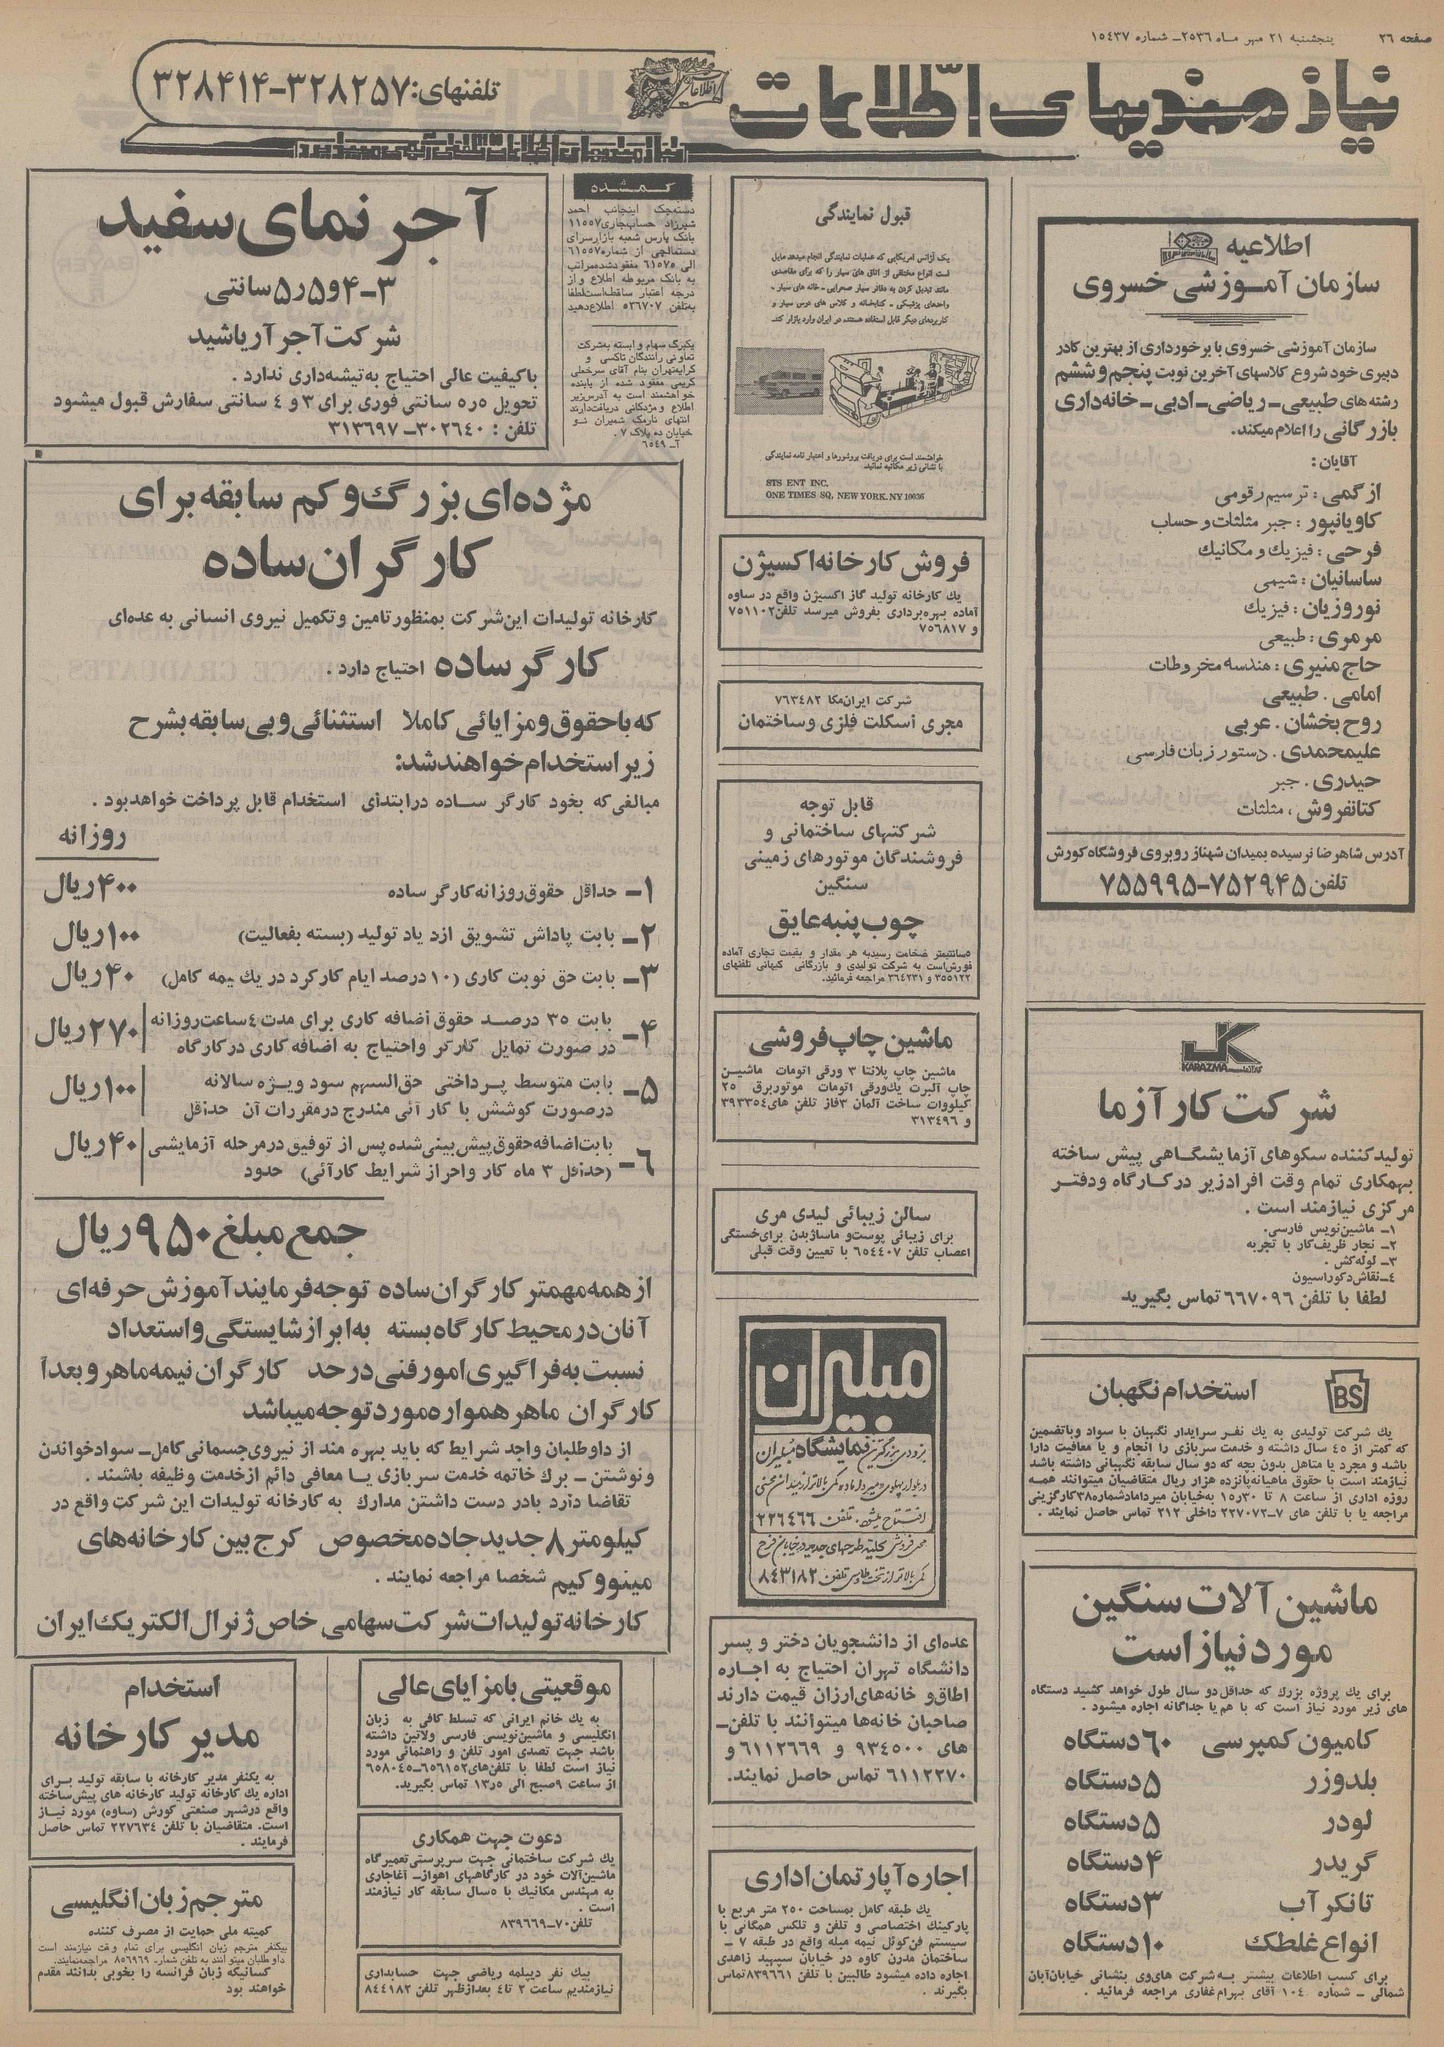 صفحه ۲۶ پنجشنبه ۲۱ مهر ماه ۲۵۳۶ـ شماره ۱۵۴۳۷
نیازمندیهای اطلاعات
تلفنهای: ۳۲۸۲۵۷-۳۲۸۴۱۴
نیازمندیهای اطلاعات تلفنی آگهی میپذیرد
اطلاعیه
سازمان آموزشی خسروی
سازمان آموزشی خسروی با برخورداری از بهترین کادر
دبیری خود شروع کلاسهای آخرین نوبت پنجم و ششم
رشته های طبیعی ـ ریاضی ـ ادبی ـ خانه‌داری
بازرگانی را اعلام میکند.
آقایان:
ازگمی: ترسیم رقومی
کاویانپور: جبر مثلثات و حساب
فرحی: فیزیک و مکانیک
ساسانیان: شیمی
نوروزیان: فیزیک
مرمری: طبیعی
حاج منیری: هندسه مخروطات
امامی. طبیعی
روح بخشان. عربی
علیمحمدی. دستور زبان فارسی
حیدری. جبر
کتانفروش، مثلثات
آدرس شاهرضا نرسیده بمیدان شهناز روبروی فروشگاه کورش
تلفن ۷۵۲۹۴۵-۷۵۵۹۹۵
KARAZMA کارآزما
شرکت کارآزما
تولیدکننده سکوهای آزمایشگاهی پیش ساخته
بهمکاری تمام وقت افراد زیر در کارگاه و دفتر
مرکزی نیازمند است.
۱ـ ماشین‌نویس فارسی.
۲ـ نجار ظریف‌کار با تجربه
۳ـ لوله‌کش.
۴ـ نقاش دکوراسیون
لطفا با تلفن ۶۶۷۰۹۶ تماس بگیرید
BS
استخدام نگهبان
یک شرکت تولیدی به یک نفر سرایدار نگهبان با سواد وباتضمین
که کمتر از ۴۵ سال داشته و خدمت سربازی را انجام و یا معافیت دارا
باشد و مجرد یا متاهل بدون بچه که دو سال سابقه نگهبانی داشته باشد
نیازمند است با حقوق ماهیانه پانزده هزار ریال متقاضیان میتوانند همه
روزه اداری از ساعت ۸ تا ۱۵ر۳۰ به‌خیابان میرداماد شماره ۳۸ کارگزینی
مراجعه یا با تلفن های ۷-۲۲۷۰۷۲ داخلی ۲۱۲ تماس حاصل نمایند.
ماشین آلات سنگین
مورد نیاز است
برای یک پروژه بزرگ که حداقل دو سال طول خواهد کشید دستگاه
های زیر مورد نیاز است که با هم یا جداگانه اجاره میشود.
کامیون کمپرسی ۶۰ دستگاه
بلدوزر ۵ دستگاه
لودر ۵ دستگاه
گریدر ۴ دستگاه
تانکر آب ۳ دستگاه
انواع غلطک ۱۰ دستگاه
برای کسب اطلاعات بیشتر به شرکت های‌وی بنشانی خیابان آبان
شمالی ـ شماره ۱۰۴ آقای بهرام غفاری مراجعه فرمائید.
قبول نمایندگی
یک آژانس امریکایی که عملیات نمایندگی انجام میدهد مایل
است انواع مختلفی از اتاق های سیار را که برای مقاصدی
مانند تبدیل کردن به دفاتر سیار صحرایی ـ خانه های سیار ـ
واحدهای پزشکی ـ کتابخانه و کلاس های درس سیار و
کاربردهای دیگر قابل استفاده هستند، در ایران وارد بازار کند.
خواهشمند است برای دریافت بروشورها و اعتبار نامه نمایندگی
با نشانی زیر مکاتبه نمائید.
STS ENT INC.
ONE TIMES SQ, NEW YORK. NY 10036
فروش کارخانه اکسیژن
یک کارخانه تولید گاز اکسیژن واقع در ساوه
آماده بهره‌برداری بفروش میرسد تلفن ۷۵۱۱۰۲
و ۷۵۶۸۱۷
شرکت ایران‌مکا ۷۶۳۴۸۲
مجری اسکلت فلزی و ساختمان
قابل توجه
شرکتهای ساختمانی و
فروشندگان موتورهای زمینی
سنگین
چوب پنبه عایق
۵ سانتیمتر ضخامت رسید به هر مقدار و بقیمت تجاری آماده
فروش است به شرکت تولیدی و بازرگانی کیهانی تلفنهای
۳۵۵۱۲۲ و ۳۶۴۲۳۱ مراجعه فرمائید.
ماشین چاپ فروشی
ماشین چاپ پلانتا ۳ ورقی اتومات ماشین
چاپ آلبرت یک‌ورقی اتومات موتوربرق ۲۵
کیلووات ساخت آلمان ۳ فاز تلفن های ۳۹۳۳۵۴
و ۳۱۳۴۹۶
سالن زیبائی لیدی مری
برای زیبائی پوست و ماساژ بدن برای خستگی
اعصاب تلفن ۶۵۴۴۰۷ با تعیین وقت قبلی
مبلیران
بزودی بزرگترین نمایشگاه مبلیران
افتتاح میشود. تلفن ۲۲۶۴۶۶
محل فروش کلیه طرحهای جدید در خیابان فرح
کمی بالاتر از تخت طاوس تلفن ۸۴۳۱۸۲
عده‌ای از دانشجویان دختر و پسر
دانشگاه تهران احتیاج به اجاره
اطاق و خانه‌های ارزان قیمت دارند
صاحبان خانه‌ها میتوانند با تلفن ـ
های ۹۳۴۵۰۰ و ۶۱۱۲۶۶۹ و
۶۱۱۲۲۷۰ تماس حاصل نمایند.
اجاره آپارتمان اداری
یک طبقه کامل بمساحت ۲۵۰ متر مربع با
پارکینک اختصاصی و تلفن و تلکس همگانی با
سیستم فن‌کوئل نیمه مبله واقع در طبقه ۷ ـ
ساختمان مدرن کاوه در خیابان سپهبد زاهدی
اجاره داده میشود طالبین با تلفن ۸۳۹۶۶۱ تماس
بگیرند.
گمشده
دسته‌چک اینجانب احمد
شیرزاد حساب‌جاری ۱۱۵۵۷
بانک پارس شعبه بازار سرای
دستمالچی از شماره ۶۱۵۵۷
الی ۶۱۵۷۵ مفقود شده مراتب
به بانک مربوطه اطلاع و از
درجه اعتبار ساقط است لطفا
به‌تلفن ۵۳۶۷۰۷ اطلاع دهید
یکبرگ سهام وابسته به شرکت
تعاونی رانندگان تاکسی و
کرایه تهران بنام آقای سرخعلی
کریمی مفقود شده از یابنده
خواهشمند است به آدرس زیر
اطلاع و مژدگانی دریافت دارند
انتهای نارمک شمیران نو
خیابان ده پلاک ۷.
آ ـ ۶۵۴۹
آجر نمای سفید
۳ـ۴ و ۵ر۵ سانتی
شرکت آجر آریاشید
با کیفیت عالی احتیاج به تیشه‌داری ندارد.
تحویل ۵ر۵ سانتی فوری برای ۳ و ۴ سانتی سفارش قبول میشود
تلفن: ۳۰۲۶۴۰ـ ۳۱۳۶۹۷
مژده‌ای بزرگ و کم سابقه برای
کارگران ساده
کارخانه تولیدات این شرکت بمنظور تامین و تکمیل نیروی انسانی به عده‌ای
کارگر ساده احتیاج دارد.
که با حقوق و مزایائی کاملا استثنائی و بی سابقه بشرح
زیر استخدام خواهند شد:
مبالغی که بخود کارگر ساده در ابتدای استخدام قابل پرداخت خواهد بود.
روزانه
۱ـ حداقل حقوق روزانه کارگر ساده ۴۰۰ ریال
۲ـ بابت پاداش تشویق ازدیاد تولید (بسته بفعالیت) ۱۰۰ ریال
۳ـ بابت حق نوبت کاری (۱۰ درصد ایام کارکرد در یک نیمه کامل) ۴۰ ریال
۴ـ بابت ۳۵ درصد حقوق اضافه کاری برای مدت ۴ ساعت روزانه
در صورت تمایل کارگر و احتیاج به اضافه کاری در کارگاه ۲۷۰ ریال
۵ـ بابت متوسط پرداختی حق‌السهم سود ویژه سالانه
در صورت کوشش با کارآئی مندرج در مقررات آن حداقل ۱۰۰ ریال
۶ـ بابت اضافه حقوق پیش‌بینی شده پس از توفیق در مرحله آزمایشی
(حداقل ۳ ماه کار و احراز شرایط کارآئی) حدود ۴۰ ریال
جمع مبلغ ۹۵۰ ریال
از همه مهمتر کارگران ساده توجه فرمایند آموزش حرفه‌ای
آنان در محیط کارگاه بسته به ابراز شایستگی و استعداد
نسبت به فراگیری امور فنی در حد کارگران نیمه ماهر و بعداً
کارگران ماهر همواره مورد توجه میباشد
از داوطلبان واجد شرایط که باید بهره مند از نیروی جسمانی کامل ـ سواد خواندن
و نوشتن ـ برگ خاتمه خدمت سربازی یا معافی دائم از خدمت وظیفه باشند.
تقاضا دارد با در دست داشتن مدارک به کارخانه تولیدات این شرکت واقع در
کیلومتر ۸ جدید جاده مخصوص کرج بین کارخانه‌های
مینو و کیم شخصا مراجعه نمایند.
کارخانه تولیدات شرکت سهامی خاص ژنرال الکتریک ایران
موقعیتی با مزایای عالی
به یک خانم ایرانی که تسلط کافی به زبان
انگلیسی و ماشین‌نویسی فارسی ولاتین داشته
باشد جهت تصدی امور تلفن و راهنمائی مورد
نیاز است لطفا با تلفن‌های ۶۵۶۱۵۲ـ۶۵۸۰۴۵
از ساعت ۹ صبح الی ۱۳ر۵ تماس بگیرید.
دعوت جهت همکاری
یک شرکت ساختمانی جهت سرپرستی تعمیرگاه
ماشین‌آلات خود در کارگاههای اهواز ـ آغاجاری
به مهندس مکانیک با ۵ سال سابقه کار نیازمند
است.
تلفن ۷۰ـ۸۳۹۶۶۹
بیک نفر دیپلمه ریاضی جهت حسابداری
نیازمندیم ساعت ۲ تا ۴ بعدازظهر تلفن ۸۴۴۱۸۲
استخدام
مدیر کارخانه
به یکنفر مدیر کارخانه با سابقه تولید برای
اداره یک کارخانه تولید کارخانه های پیش‌ساخته
واقع در شهر صنعتی کورش (ساوه) مورد نیاز
است. متقاضیان با تلفن ۲۲۷۶۳۴ تماس حاصل
فرمایند.
مترجم زبان انگلیسی
کمیته ملی حمایت از مصرف کننده
بیکنفر مترجم زبان انگلیسی برای تمام وقت نیازمند است
داوطلبان میتوانند به تلفن شماره ۸۵۶۹۶۹ مراجعه نمایند.
کسانیکه زبان فرانسه را بخوبی بدانند مقدم
خواهند بود